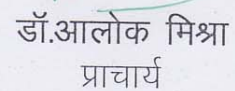 डॉ.आलोक मिश्रा
प्राचार्य